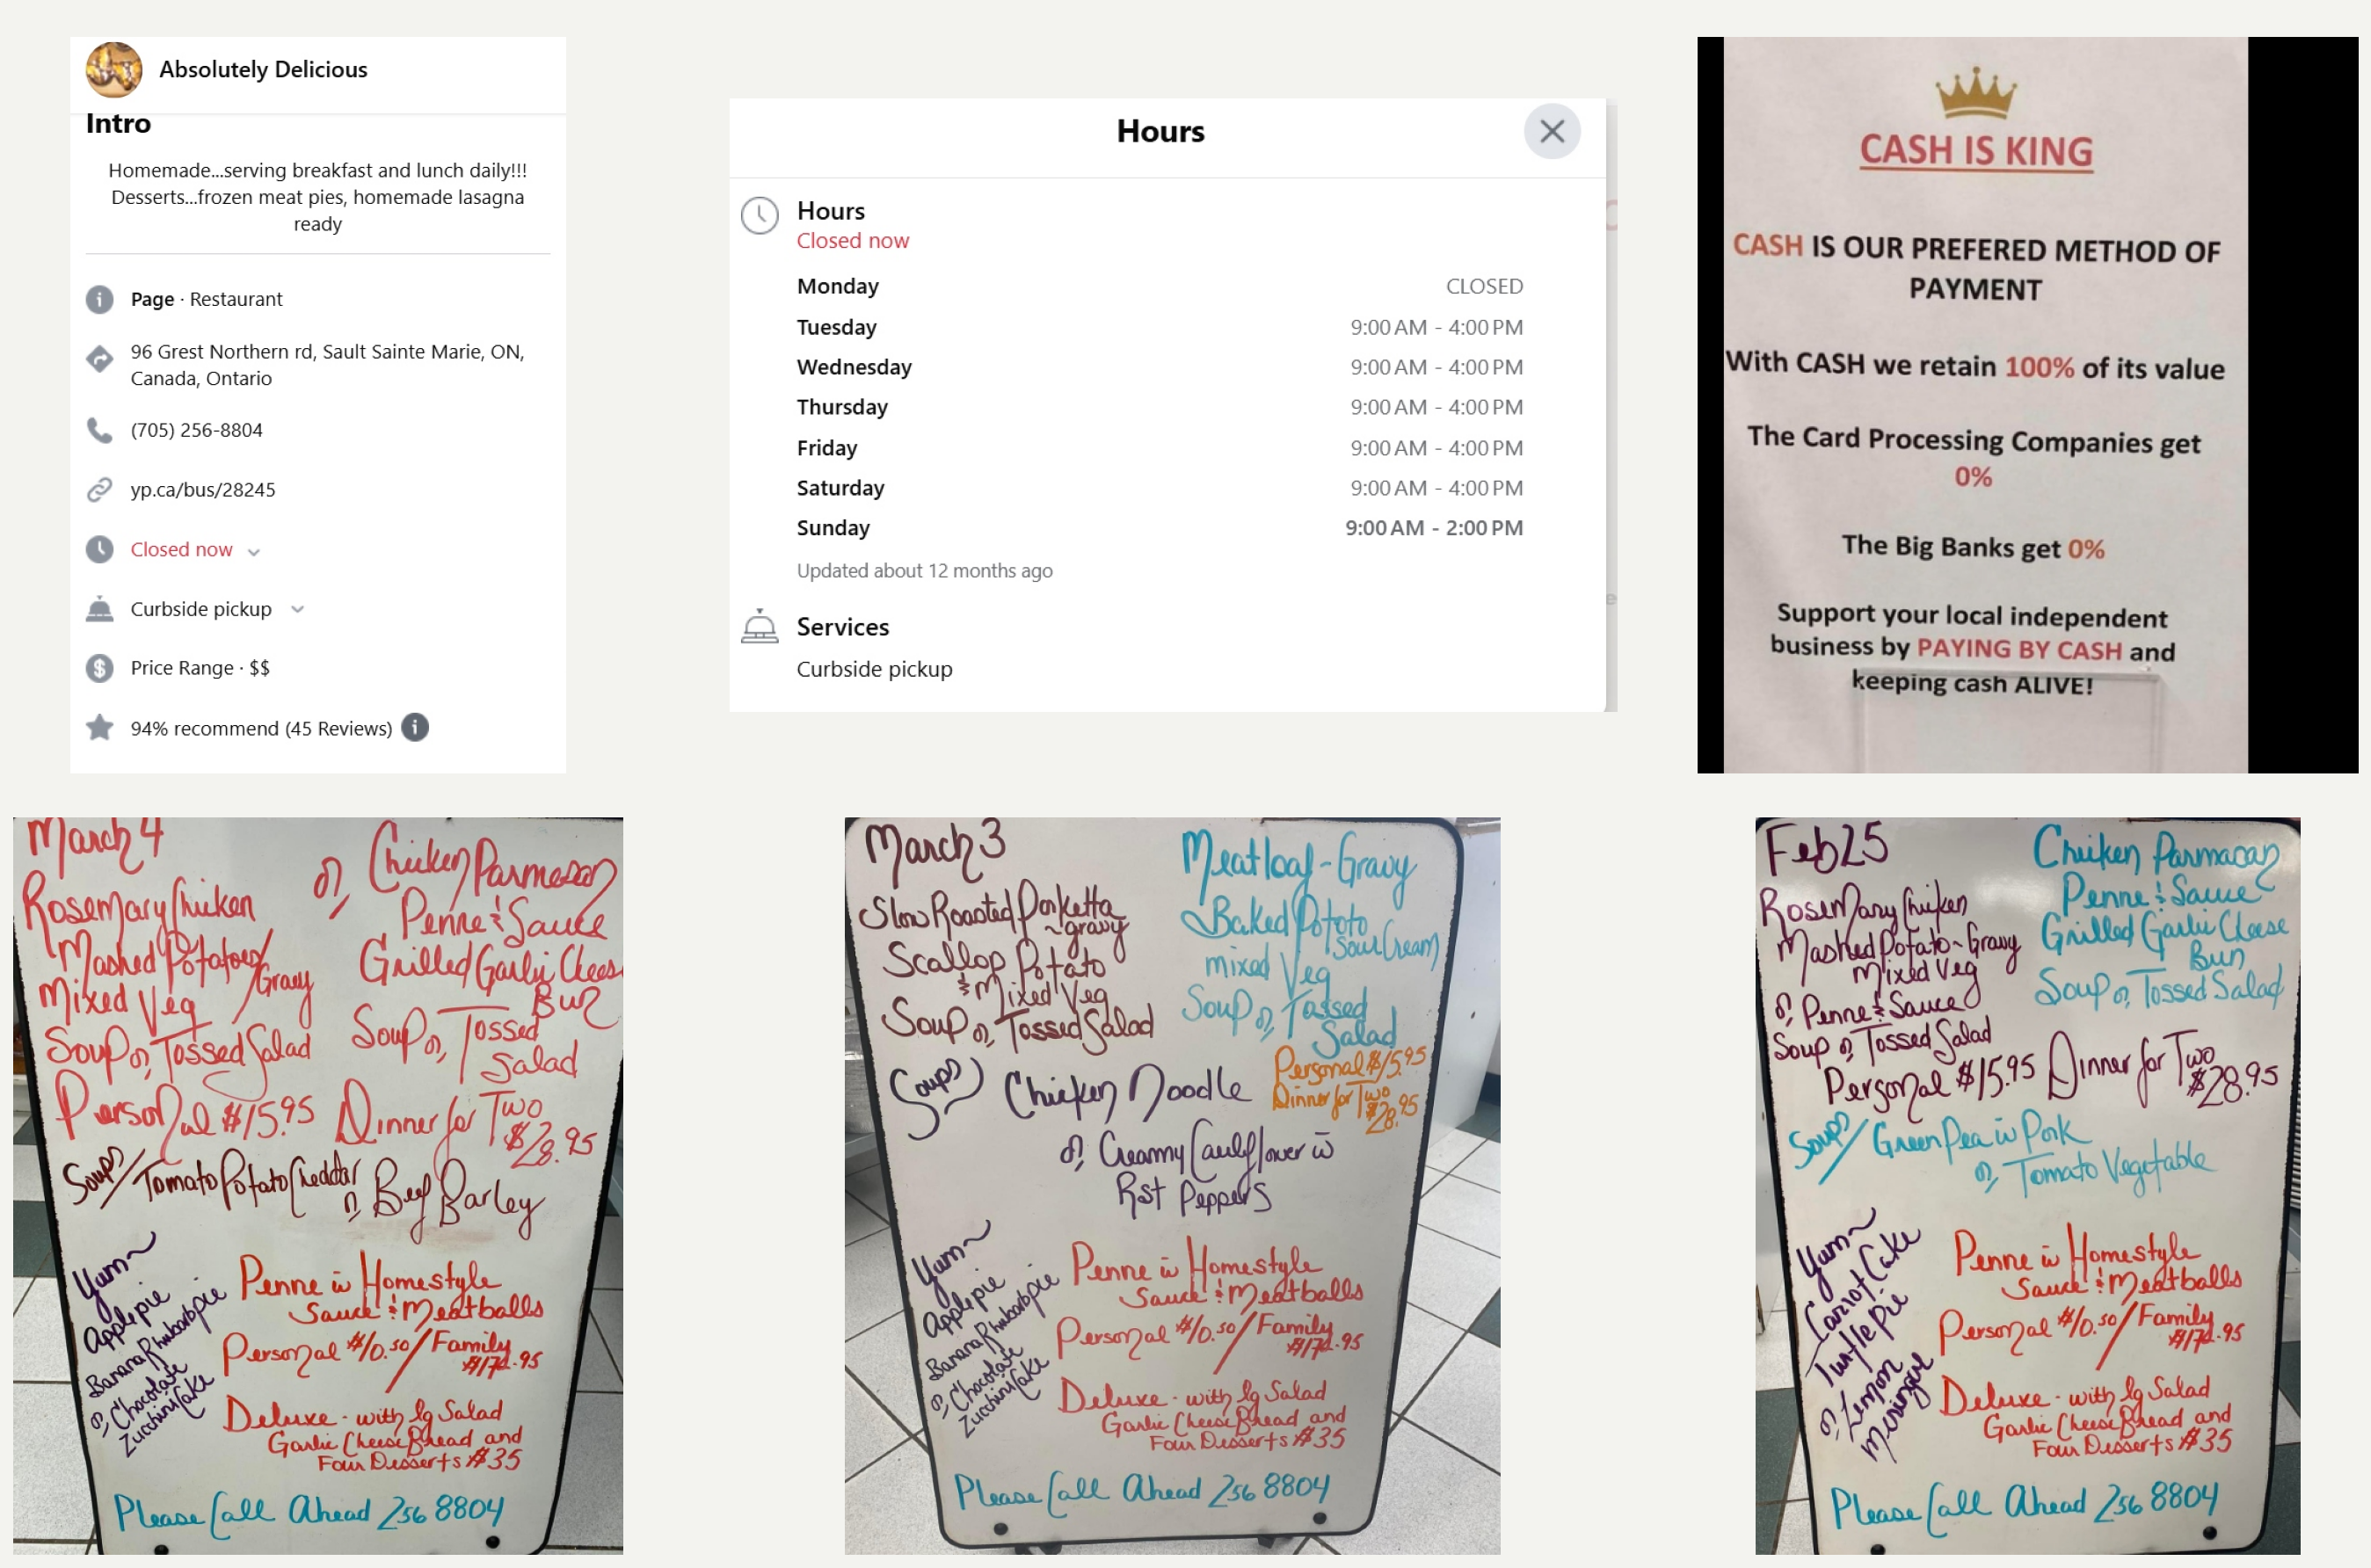 Absolutely Delicious
Intro
Homemade...serving breakfast and lunch daily!!!
Desserts...frozen meat pies, homemade lasagna
ready
Page · Restaurant
96 Grest Northern rd, Sault Sainte Marie, ON,
Canada, Ontario
(705) 256-8804
yp.ca/bus/28245
Closed now
Curbside pickup
Price Range · $$
94% recommend (45 Reviews)
Hours
Hours
Closed now
Monday CLOSED
Tuesday 9:00 AM - 4:00 PM
Wednesday 9:00 AM - 4:00 PM
Thursday 9:00 AM - 4:00 PM
Friday 9:00 AM - 4:00 PM
Saturday 9:00 AM - 4:00 PM
Sunday 9:00 AM - 2:00 PM
Updated about 12 months ago
Services
Curbside pickup
CASH IS KING
CASH IS OUR PREFERED METHOD OF
PAYMENT
With CASH we retain 100% of its value
The Card Processing Companies get
0%
The Big Banks get 0%
Support your local independent
business by PAYING BY CASH and
keeping cash ALIVE!
March 4
Rosemary Chicken
Mashed Potatoes/
Gravy
Mixed Veg
Soup or Tossed Salad
or Chicken Parmesan
Penne & Sauce
Grilled Garlic Chees
Bun
Soup or Tossed
Salad
Personal $15.95 Dinner for Two
$28.95
Soups/ Tomato Potato Cheddar
or Beef Barley
Yum~
Apple pie
Banana Rhubarb pie
or Chocolate
Zucchini Cake
Penne w Homestyle
Sauce & Meatballs
Personal $10.50/Family
.95
Deluxe - with lg Salad
Garlic Cheese Bread and
Four Desserts $35
Please Call Ahead 256 8804
March 3
Slow Roasted Porketta
~gravy
Scallop Potato
& Mixed Veg
Soup or Tossed Salad
Meatloaf - Gravy
Baked Potato
Sour Cream
mixed Veg
Soup or Tossed
Salad
Personal $15.95
Dinner for Two
$28.95
Soups) Chicken Noodle
or Creamy Cauliflower w
Rst Peppers
Yum~
Apple pie
Banana Rhubarb pie
or Chocolate
Zucchini Cake
Penne w Homestyle
Sauce & Meatballs
Personal $10.50/Family
.95
Deluxe - with lg Salad
Garlic Cheese Bread and
Four Desserts $35
Please Call Ahead 256 8804
Feb 25
Rosemary Chicken
Mashed Potato - Gravy
Mixed Veg
or Penne & Sauce
Soup or Tossed Salad
Chicken Parmasan
Penne & Sauce
Grilled Garlic Cheese
Bun
Soup or Tossed Salad
Personal $15.95 Dinner for Two
$28.95
Soups/ Green Pea w Pork
or Tomato Vegetable
Yum~
Carrot Cake
Turtle Pie
or Lemon
Meringue
Penne w Homestyle
Sauce & Meatballs
Personal $10.50/Family
.95
Deluxe - with lg Salad
Garlic Cheese Bread and
Four Desserts $35
Please Call Ahead 256 8804